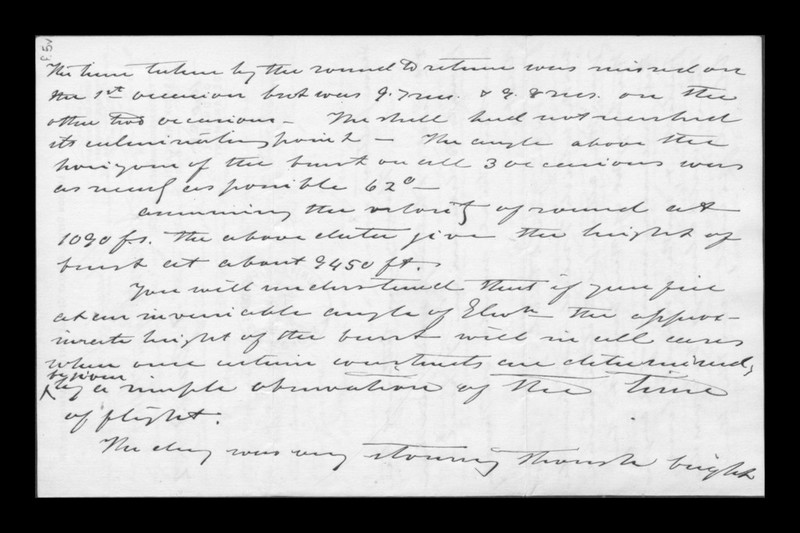 The time taken by the sound to return was missed on
the 1st occasion but was 9.7 secs. & 9.8 secs. on the
other two occasions – The shell had not reached
its culminating point – The angle above the
horizon of the burst on all 3 occasions was
as nearly as possible 62° –
Assuming the velocity of sound at
1090 fs. the above data give the height of
burst at about 9450 ft.
You will understand that if you fire
at an invariable angle of Elevn the approx-
imate height of the burst will in all cases
when once certain constants are determined,
be given
by a simple observation of the time
of flight.
The day was very stormy though bright